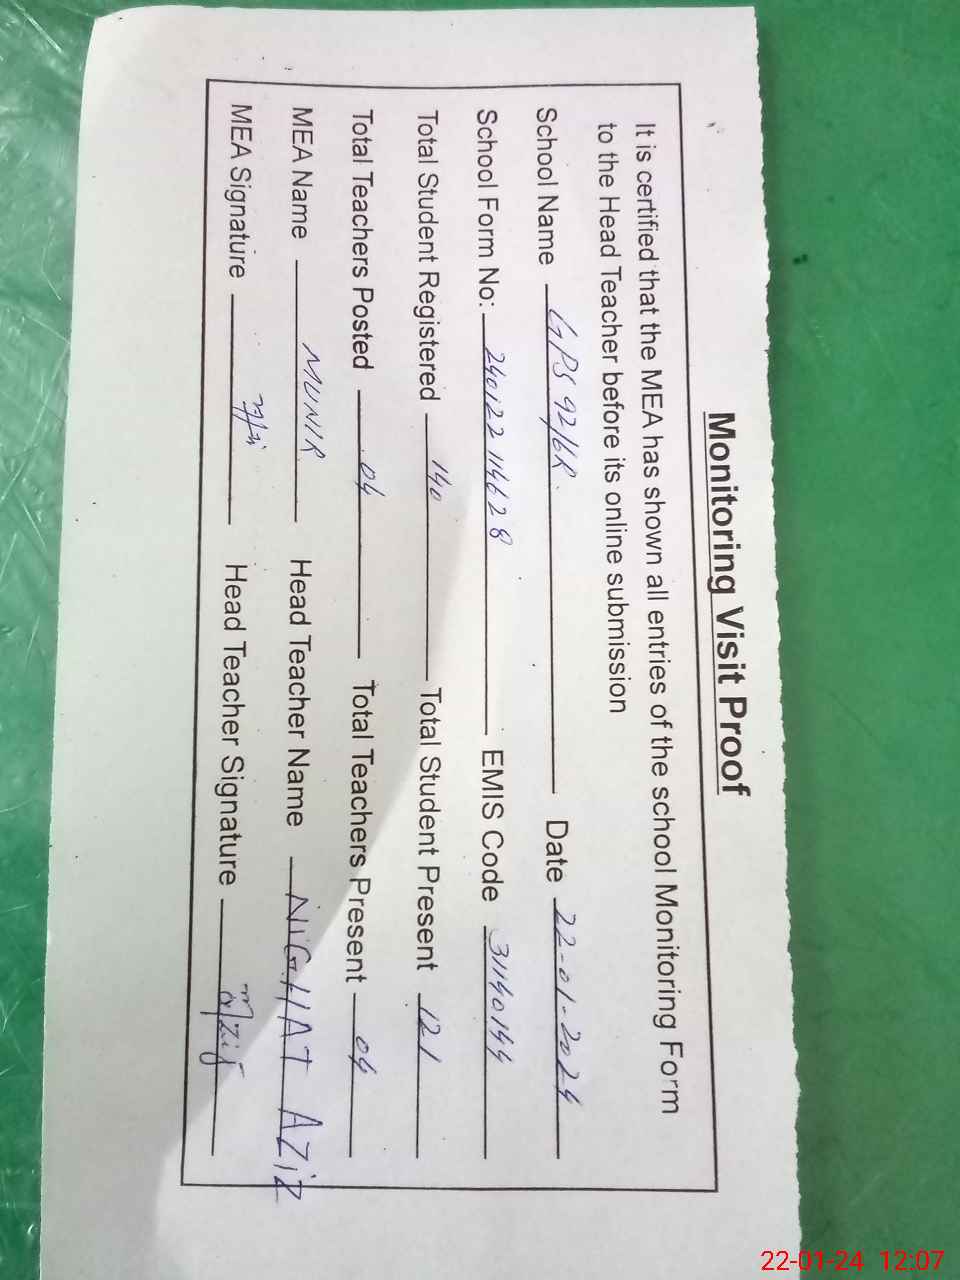 Monitoring Visit Proof
It is certified that the MEA has shown all entries of the school Monitoring Form
to the Head Teacher before its online submission
School Name GPS 92/6R Date 22-01-2024
School Form No: 240122114628 EMIS Code 31140144
Total Student Registered 140 Total Student Present 121
Total Teachers Posted 04 Total Teachers Present 04
MEA Name MUNIR Head Teacher Name NiGHAT AZiZ
MEA Signature Head Teacher Signature
22-01-24 12:07